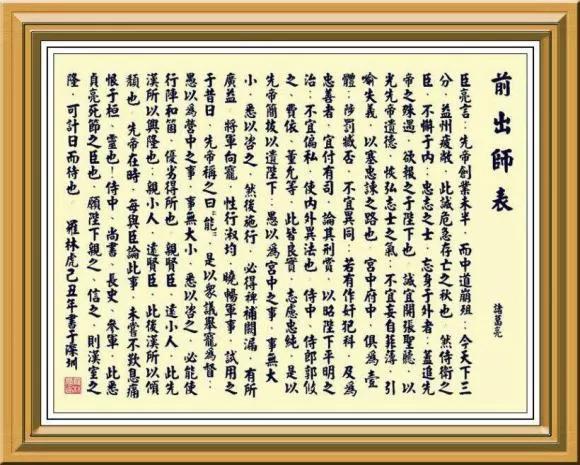 前出師表
諸葛亮
臣亮言：先帝創業未半，而中道崩殂；今天下三
分，益州疲敝，此誠危急存亡之秋也。然侍衛之
臣，不懈于内；忠志之士，忘身于外者：蓋追先
帝之殊遇，欲報之于陛下也。誠宜開張聖聽，以
光先帝遺德，恢弘志士之氣；不宜妄自菲薄，引
喻失義，以塞忠諫之路也。宮中府中，俱為壹
體；陟罰臧否，不宜異同：若有作奸犯科，及為
忠善者，宜付有司，論其刑賞，以昭陛下平明之
治；不宜偏私，使内外異法也。侍中、侍郎郭攸
之、費依、董允等，此皆良實，志慮忠純，是以
先帝簡拔以遺陛下：愚以為宮中之事，事無大
小，悉以咨之，然後施行，必得裨補闕漏，有所
廣益。將軍向寵，性行淑均，曉暢軍事，試用之
于昔日，先帝稱之曰"能"，是以衆議舉寵為督：
愚以為營中之事，事無大小，悉以咨之，必能使
行陣和笛，優劣得所也。親賢臣，遠小人，此先
漢所以興隆也；親小人，遠賢臣，此後漢所以傾
頹也。先帝在時，每與臣論此事，未嘗不歎息痛
恨于桓、靈也！侍中、尚書、長史、參軍，此悉
貞亮死節之臣也，願陛下親之、信之，則漢室之
隆，可計日而待也。 羅林虎己丑年書于深圳